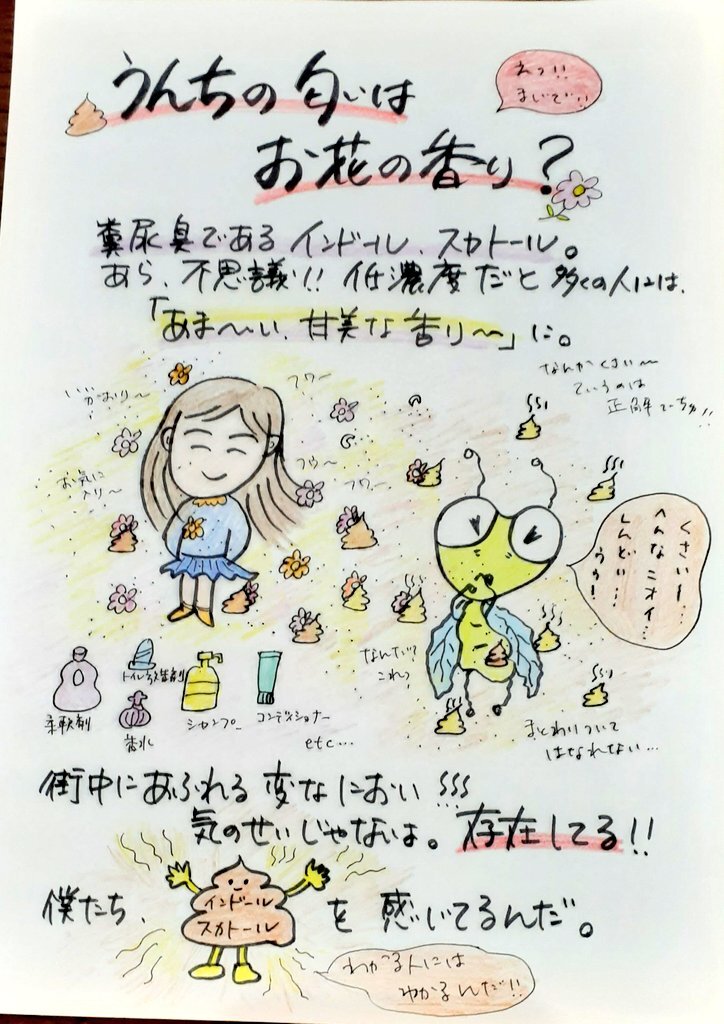 うんちの匂いは
お花の香り?
えっ!!
まじで!!
糞尿臭である インドール、スカトール。
あら、不思議!! 低濃度だと 多くの人には、
「あま〜い、甘美な香り〜」に。
いいかおり〜
フワ〜
お気に
入り〜
フワ〜
フワ〜
なんかくさい〜
ていうのは
正解でちゅ!!
くさいー…
へんなニオイ…
しんどい…
うぅ!
なんだ?
これ?
まとわりついて
はなれない…
柔軟剤
トイレ芳香剤
香水
シャンプー
コンディショナー
etc…
街中にあふれる 変なにおい
気のせいじゃないよ。存在してる!!
僕たち、
インドール
スカトール
を 感じてるんだ。
わかる人には
わかるんだ!!